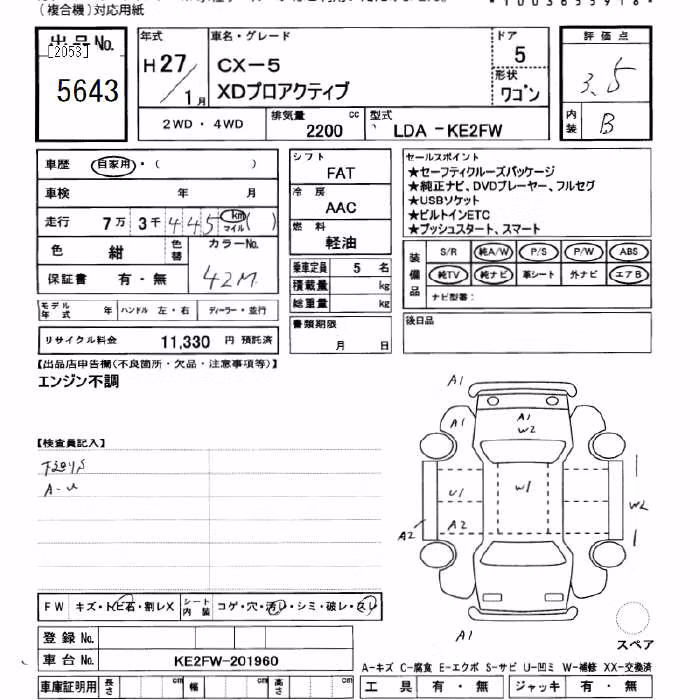 (複合機)対応用紙
出品No.
[2053]
5643
年式
H27/1月
車名・グレード
CX-5
XDプロアクティブ
ドア
5
形状
ワゴン
評価点
3.5
内装
B
2WD・4WD
排気量
2200
cc
型式
LDA -KE2FW
車歴 自家用・( )
車検 年 月
走行 7万 3千 445 km マイル ( )
色 紺
色替
カラーNo.
42M
保証書 有・無
シフト
FAT
冷房
AAC
燃料
軽油
乗車定員 5 名
積載量 kg
総重量 kg
セールスポイント
★セーフティクルーズパッケージ
★純正ナビ、DVDプレーヤー、フルセグ
★USBソケット
★ビルトインETC
★プッシュスタート、スマート
装備品
S/R 純A/W P/S P/W ABS
純TV 純ナビ 革シート 外ナビ エアB
ナビ型番:
モデル年式 年 ハンドル 左・右 ディーラー・並行
リサイクル料金 11,330 円 預託済
書類期限
月 日
後日品
【出品店申告欄(不良箇所・欠品・注意事項等)】
エンジン不調
【検査員記入】
A1
A1
A1
W2
U1
W1
A2
A2
W2
A1
FW キズ・トビ石・割レX
シート内装 コゲ・穴・汚レ・シミ・破レ・スレ
スペア
登録No.
車台No. KE2FW-201960
A-キズ C-腐食 E-エクボ S-サビ U-凹ミ W-補修 XX-交換済
車庫証明用 長さ cm 幅 cm 高さ cm
工具 有・無 ジャッキ 有・無